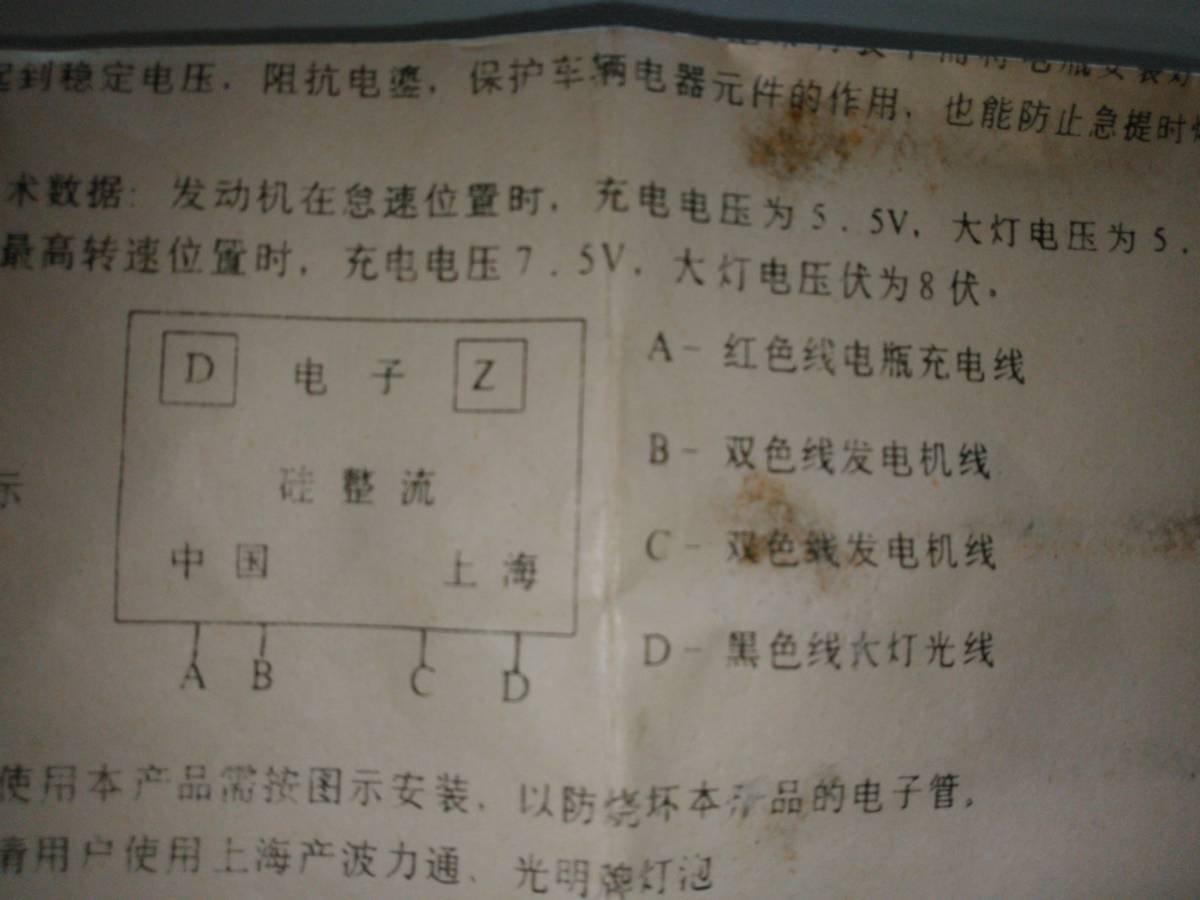 起到稳定电压，阻抗电鎏，保护车辆电器元件的作用，也能防止急提时
术数据：发动机在怠速位置时，充电电压为5.5V，大灯电压为5.
最高转速位置时，充电电压7.5V，大灯电压伏为8伏，
D 电子 Z
硅整流
中国 上海
A B C D
A- 红色线电瓶充电线
B- 双色线发电机线
C- 双色线发电机线
D- 黑色线大灯光线
示
使用本产品需按图示安装，以防烧坏本产品的电子管，
请用户使用上海产波力通、光明牌灯泡